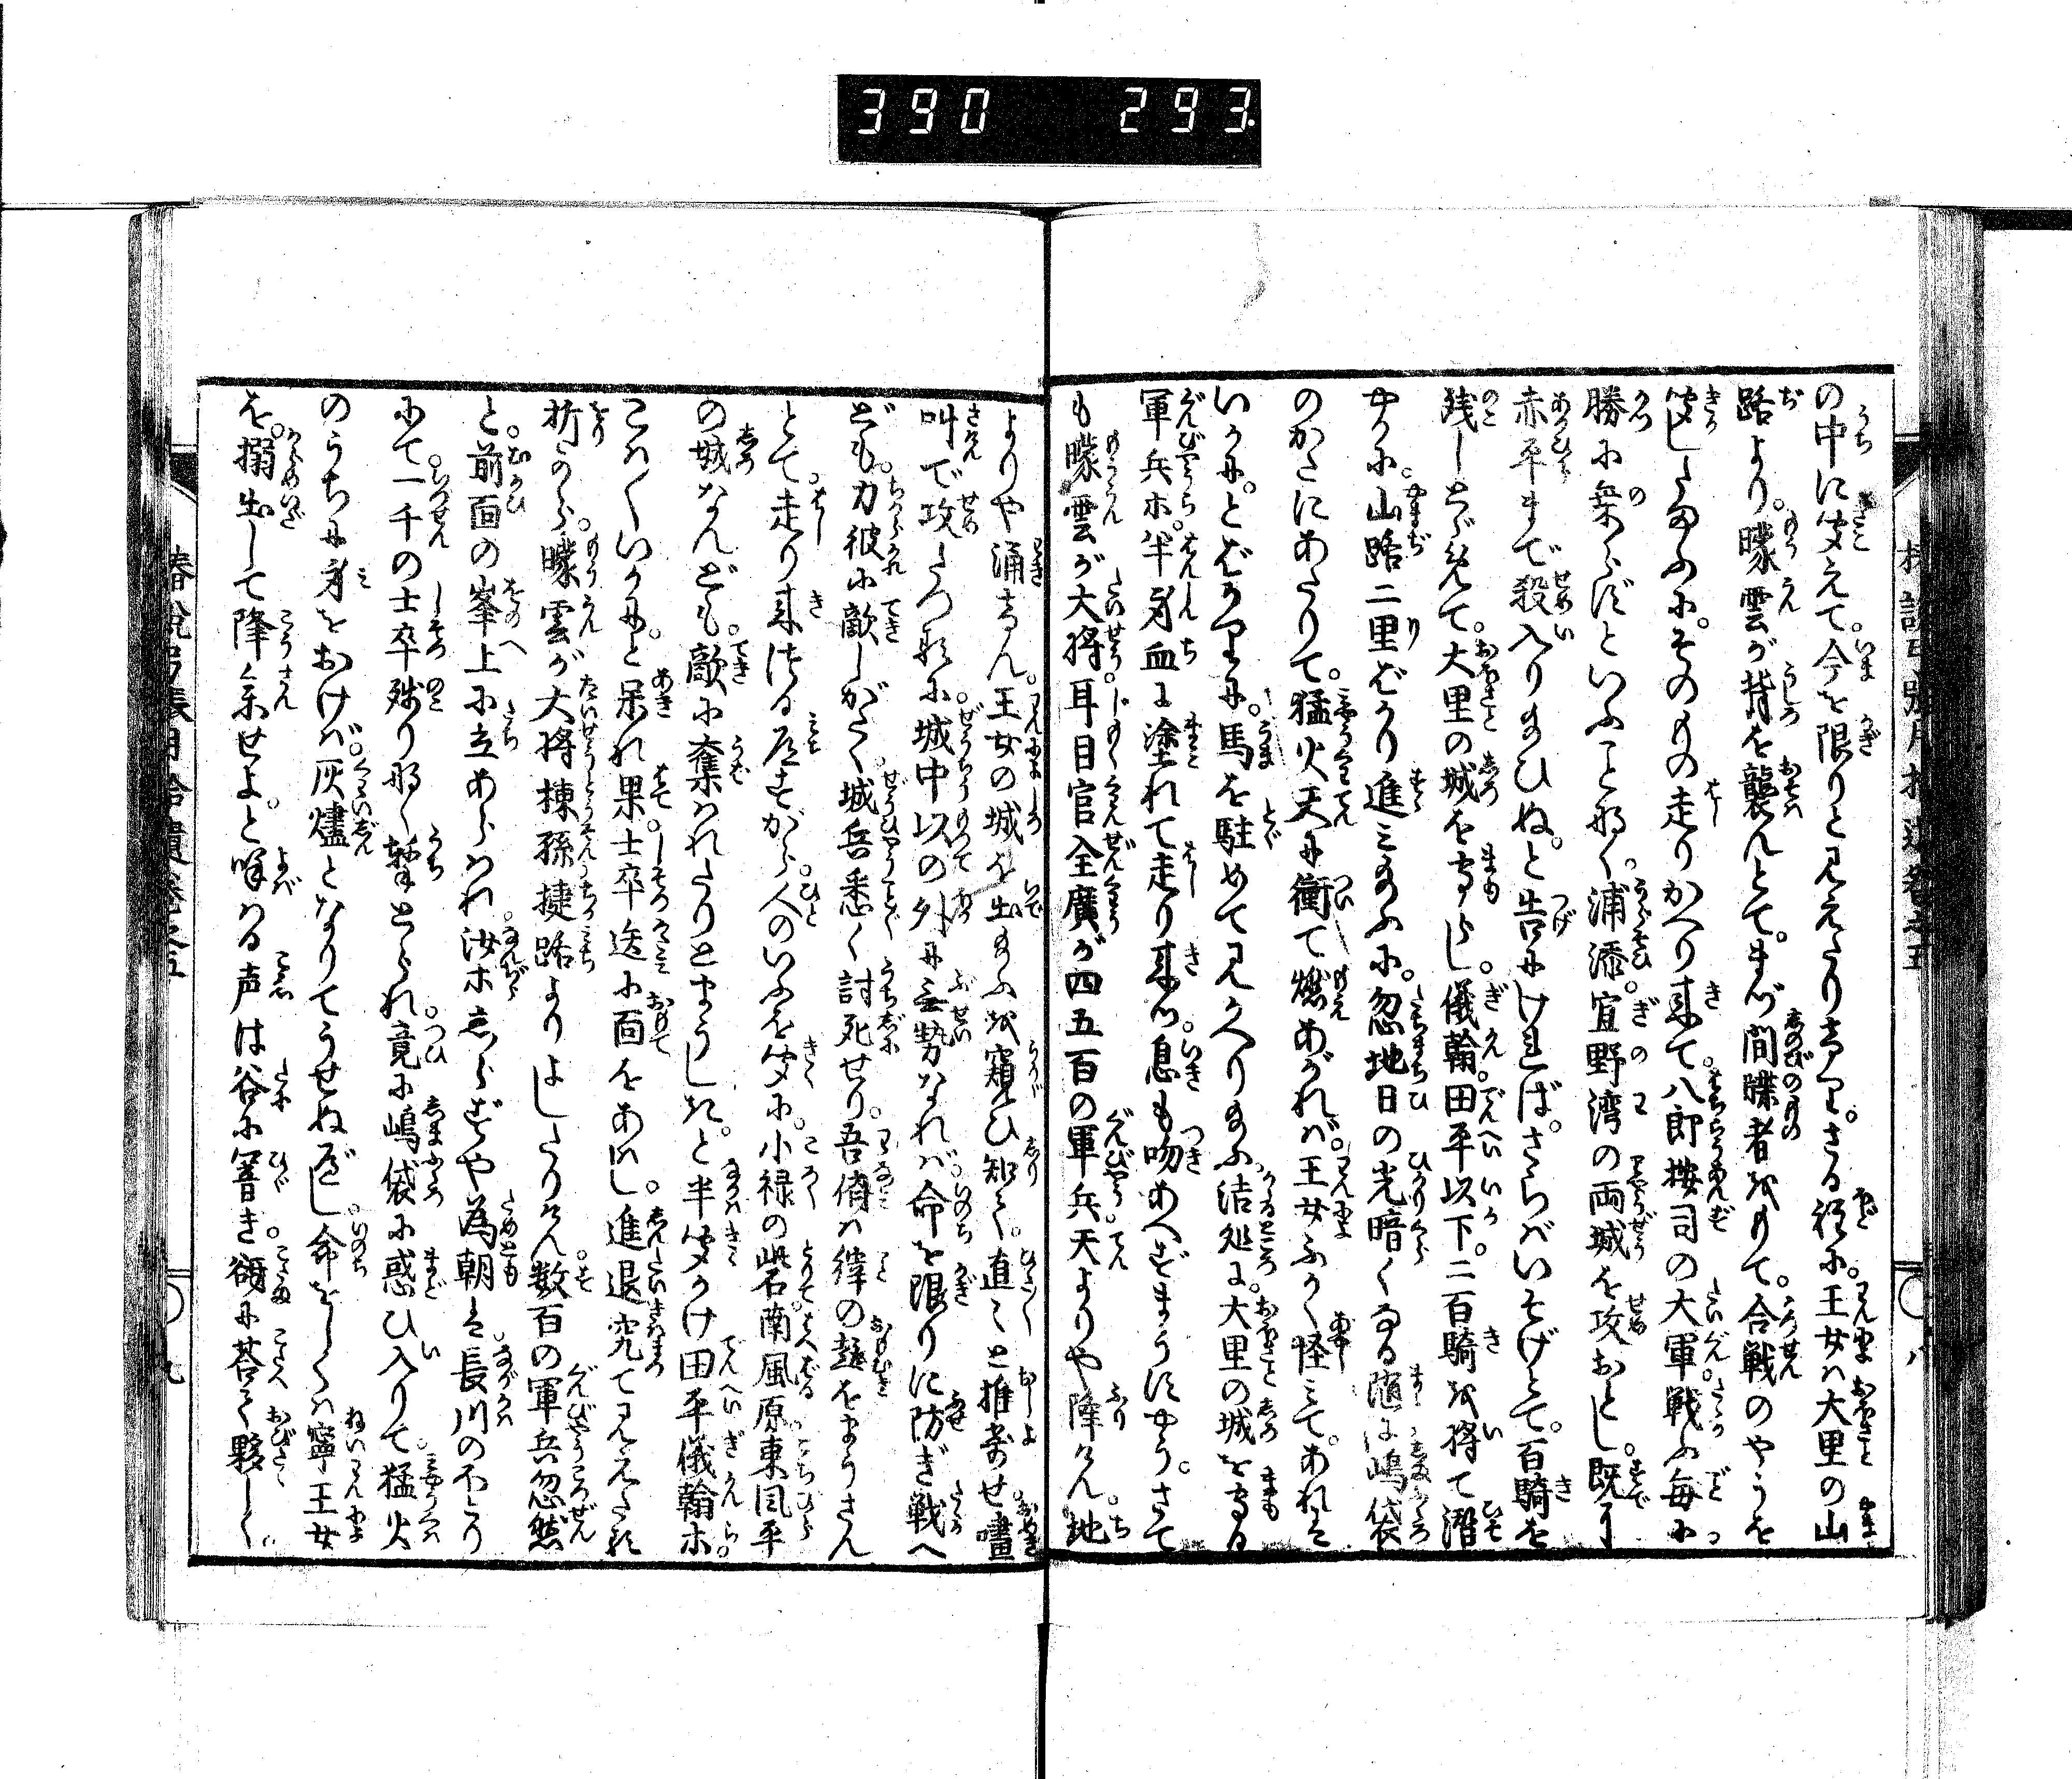 390 293.
の中に聞えて。今を限りと見えたりける。さる程に。王女は大里の山
路より。矇雲が背を襲んとて。まづ間諜者をもて。合戦のやうを
聞したまふに。そのもの走りかへり来て。八郎按司の大軍。戦ふ毎に
勝に乗らずといふことなく。浦添。宜野湾の両城を攻おとし。既に
赤平まで殺入り給ひぬ。と告にければ。さらばいそげとて。百騎を
残しとゞめて。大里の城を守らし。儀翰。田平以下。二百騎を将て潜
やかに。山路二里ばかり進み給ふに。忽地日の光暗くなる随に。嶋袋
のかたにあたりて。猛火天に衝て燃あがれば。王女ふかく怪みて。あれは
いかに。とばかりに。馬を駐めて見かへり給ふ。浩処に。大里の城を守る
軍兵等。半身血に塗れて走り来つ。息も吻あへずまうすやう。さて
も矇雲が大将。耳目官全廣が四五百の軍兵天よりや降けん。地
よりや涌けん。王女の城を出給ふを窺ひ知りて。直々と推寄せ嚍
叫で攻たつるに。城中以の外に無勢なれば。命を限りに防ぎ戦へ
ども。力彼に敵しがたく。城兵悉く討死せり。吾儕は縡の趣をまうさん
とて。走り来つる道すがら。人のいふを聞くに。小禄の砦。南風原東風平
の城なんども。敵に奪はれたりとまうしき。と半聞かけ田平儀翰等。
こは〳〵いかに。と呆れ果。士卒迭に面をあはし。進退究て見えたる
折から。矇雲が大将棟孫捷路よりよしたりけん。数百の軍兵忽然
と。前面の峯上に立あらはれ。汝等しらずや為朝は。長川のほとり
にて。一千の士卒残り少く撃とられ。竟に嶋袋に惑ひ入りて。猛火
のうちに身をおけば。灰燼となりてうせぬべし。命をしくは寧王女
を。搦出して降参せよ。と喚はる声は谷に響き。谺に荅て夥し。
椿説弓張月拾遺巻之五